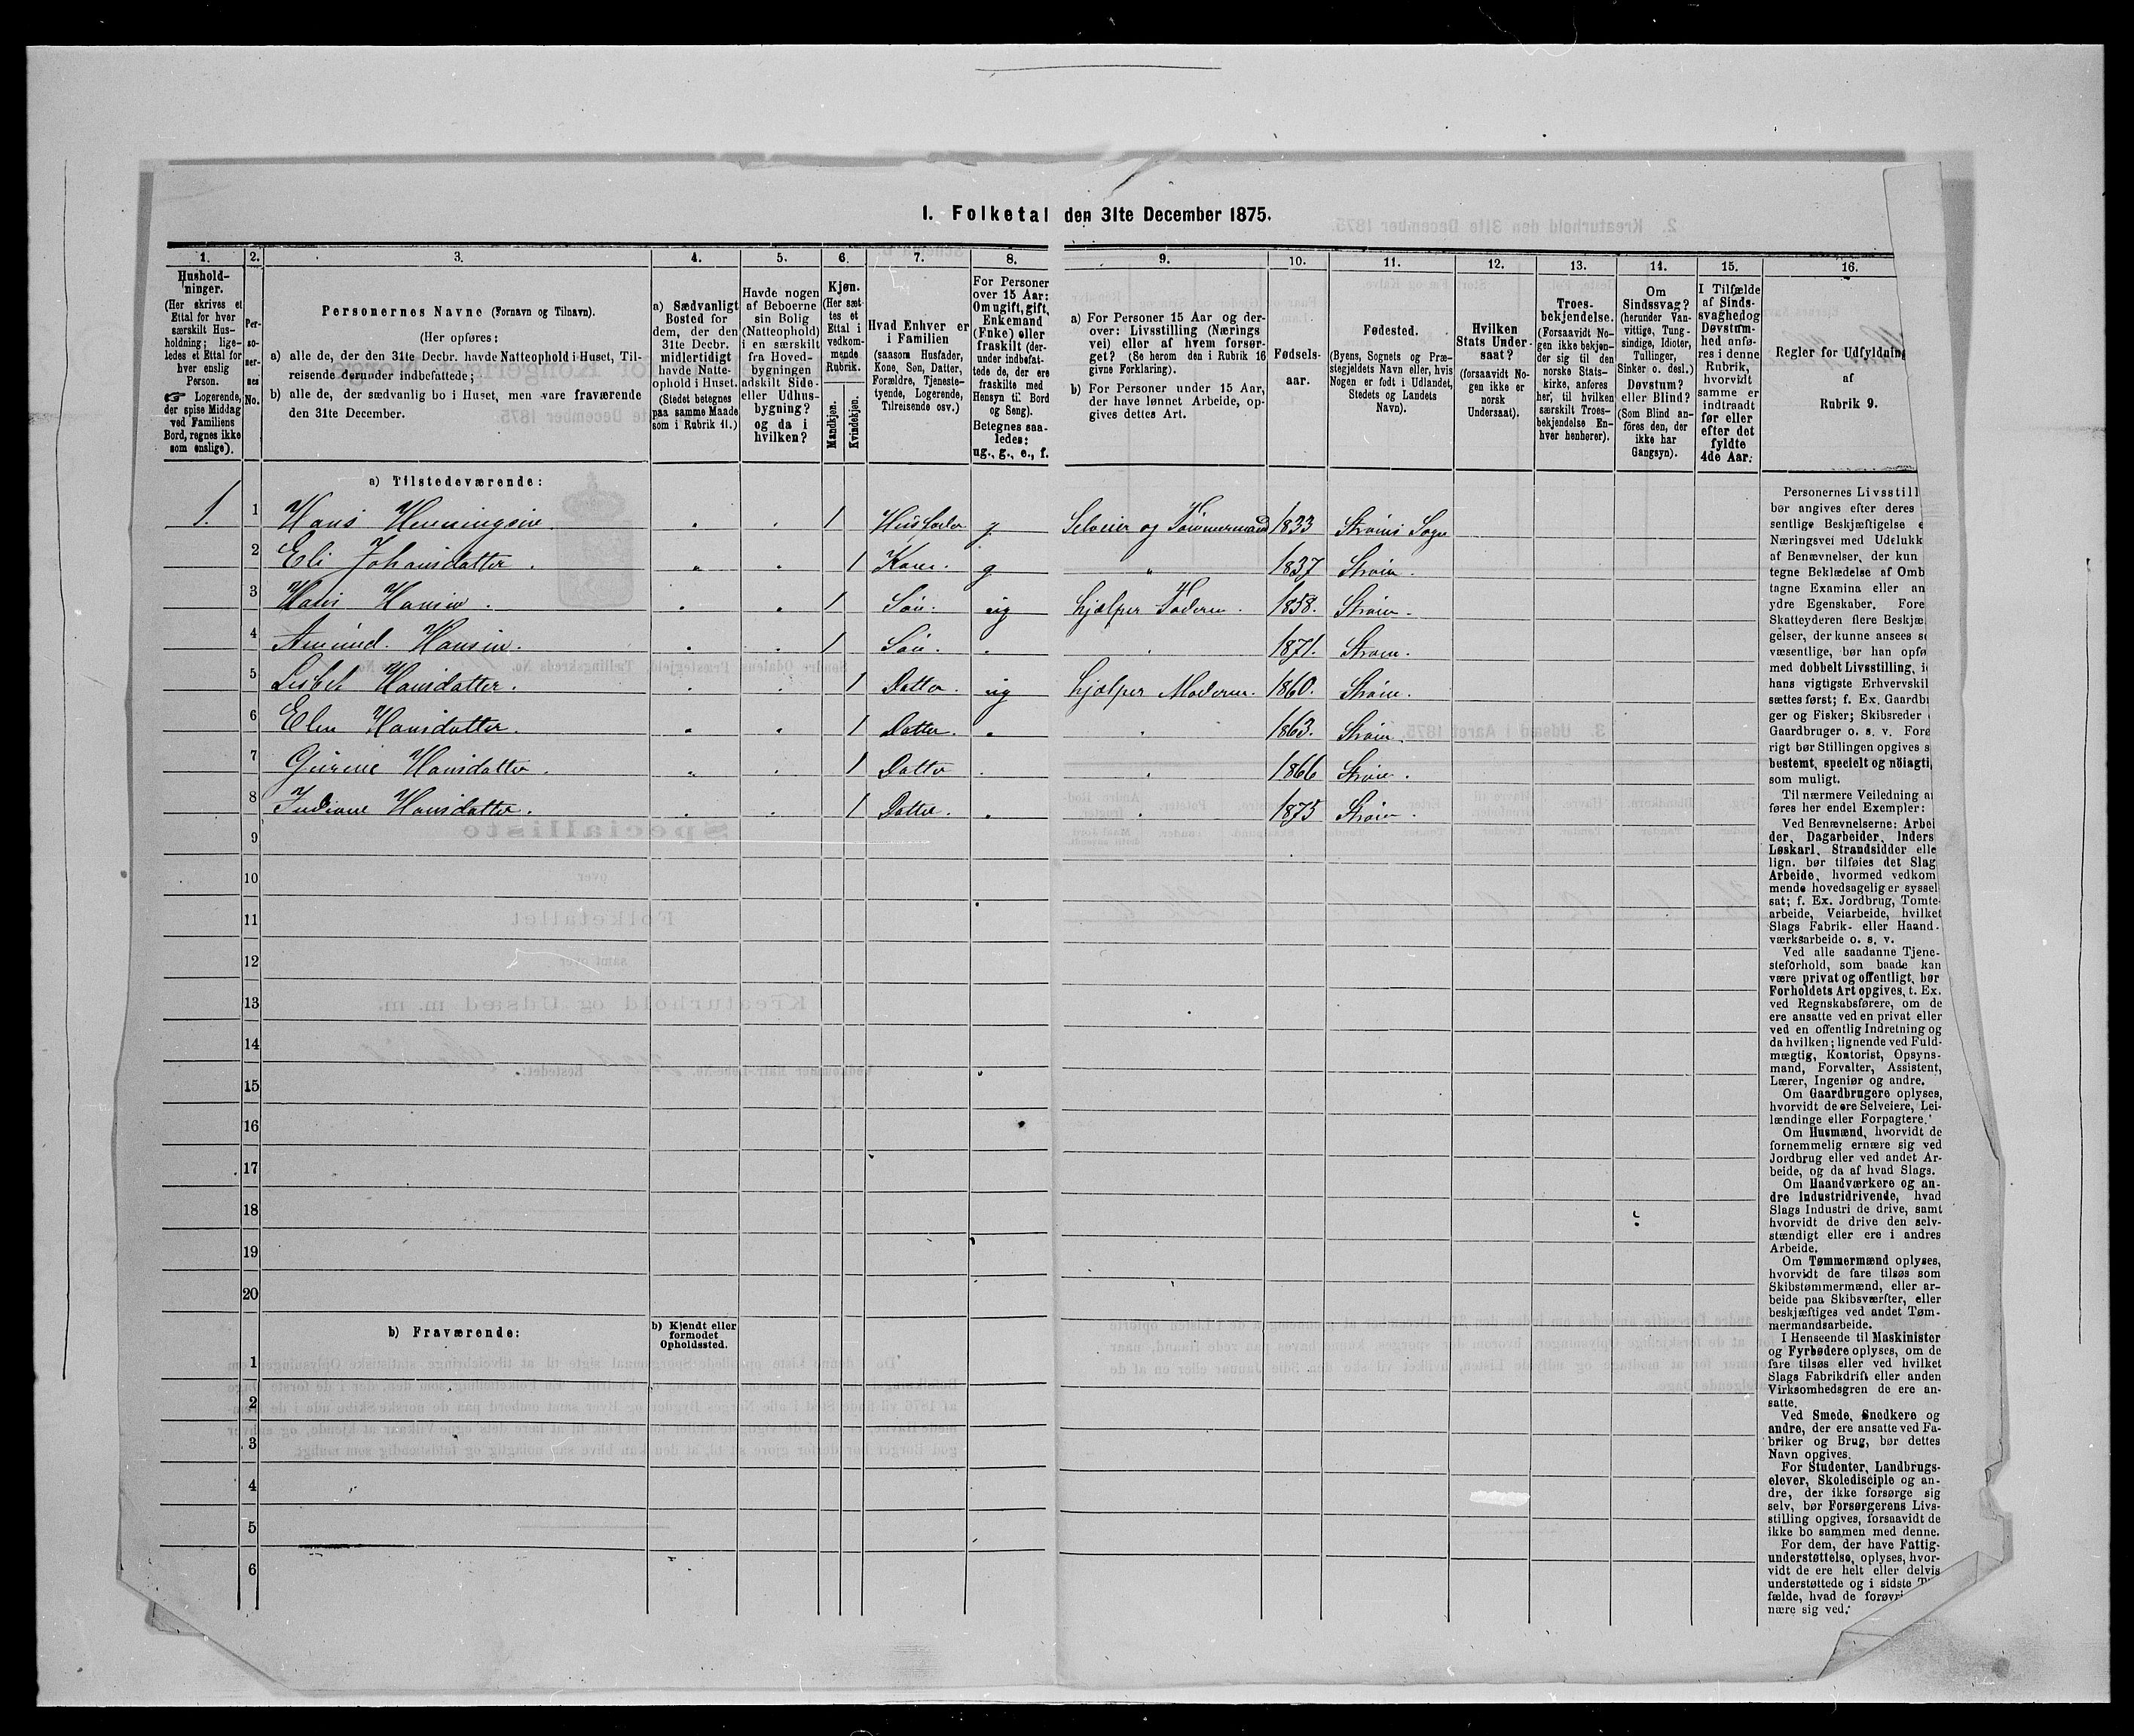 1. Folketal den 31te December 1875.
1. 2. 3. 4. 5. 6. 7. 8. 9. 10. 11. 12. 13. 14. 15. 16.
Hushold-
ninger.
(Her skrives et
Ettal for hver
særskilt Hus-
holdning; lige-
ledes et Ettal for
hver enslig
Person.
☞ Logerende,
der spise Middag
ved Familiens
Bord, regnes ikke
som enslige).
Per-
so-
ner-
nes
No.
Personernes Navne (Fornavn og Tilnavn).
(Her opføres:
a) alle de, der den 31te Decbr. havde Natteophold i Huset, Til-
reisende derunder indbefattede;
b) alle de, der sædvanlig bo i Huset, men vare fraværende
den 31te December.
a) Sædvanligt
Bosted for
dem, der den
31te Decbr.
midlertidigt
havde Natte-
ophold i Huset.
(Stedet betegnes
paa samme Maade
som i Rubrik 11.)
Havde nogen
af Beboerne
sin Bolig
(Natteophold)
i en særskilt
fra Hoved-
bygningen
adskilt Side-
eller Udhus-
bygning?
og da i
hvilken?
Kjøn.
(Her sæt-
tes et
Ettal i
vedkom-
mende
Rubrik.
Mandkjøn.
Kvindekjøn.
Hvad Enhver er
i Familien
(saasom Husfader,
Kone, Søn, Datter,
Forældre, Tjeneste-
tyende, Logerende,
Tilreisende osv.)
For Personer
over 15 Aar:
Om ugift, gift,
Enkemand
(Enke) eller
fraskilt (der-
under indbefat-
tede de, der ere
fraskilte med
Hensyn til Bord
og Seng).
Betegnes saa-
ledes:
ug., g., e., f.
a) For Personer 15 Aar og der-
over: Livsstilling (Nærings
vei) eller af hvem forsør-
get? (Se herom den i Rubrik 16
givne Forklaring).
b) For Personer under 15 Aar,
der have lønnet Arbeide, op-
gives dettes Art.
Fødsels-
aar.
Fødested.
(Byens, Sognets og Præ-
stegjeldets Navn eller, hvis
Nogen er født i Udlandet,
Stedets og Landets
Navn).
Hvilken
Stats Under-
saat?
(forsaavidt No-
gen ikke er
norsk
Undersaat).
Troes-
bekjendelse.
(Forsaavidt No-
gen ikke bekjen-
der sig til den
norske Stats-
kirke, anføres
her, til hvilken
særskilt Troes-
bekjendelse En-
hver henhører).
Om
Sindssvag?
(herunder Van-
vittige, Tung-
sindige, Idioter,
Tullinger,
Sinker o. desl.)
Døvstum?
eller Blind?
(Som Blind an-
føres den, der
ikke har
Gangsyn).
I Tilfælde
af Sinds-
svaghed og
Døvstum-
hed anfø-
res i denne
Rubrik,
hvorvidt
samme er
indtraadt
før eller
efter det
fyldte
4de Aar.
Regler for Udfyldning
af
Rubrik 9.
a) Tilstedeværende:
1. 1 Hans Henningsen. 1 Husfader g Selveier og Tømmermand 1833 Strøms Sogn
2 Eli Johansdatter. 1 Kone. g 1837 Strøm.
3 Hans Hansen. 1 Søn. ug hjælper Faderen. 1858. Strøm.
4 Amund. Hansen. 1 Søn. 1871. Strøm.
5 Lisbet Hansdatter. 1 Datter. ug hjælper Moderen. 1860. Strøm.
6 Elen Hansdatter. 1 Datter. 1863. Strøm.
7 Gurine Hansdatter. 1 Datter 1866 Strøm.
8 Hansdatter. 1 Datter. 1875 Strøm.
9
10
11
12
13
14
15
16
17
18
19
20
b) Fraværende:
b) Kjendt eller
formodet
Opholdssted.
1
2
3
4
5
6
Personernes Livsstill
bør angives efter deres
sentlige Beskjæftigelse e
Næringsvei med Udelukk
af Benævnelser, der kun
tegne Beklædelse af Omb
tagne Examina eller an
ydre Egenskaber. Fore
Skatteyderen flere Beskjæ
gelser, der kunne ansees s
væsentlige, bør han opfø
med dobbelt Livsstilling, i
hans vigtigste Erhvervskil
sættes først; f. Ex. Gaardbr
ger og Fisker; Skibsreder
Gaardbruger o. s. v. Forø
rigt bør Stillingen opgives s
bestemt, specielt og nöiagti
som muligt.
Til nærmere Veiledning a
føres her endel Exempler:
Ved Benævnelserne: Arbei
der, Dagarbeider, Inders
Løskarl, Strandsidder elle
lign. bør tilføies det Slag
Arbeide, hvormed vedkom
mende hovedsagelig er syssel
sat; f. Ex. Jordbrug, Tomte-
arbeide, Veiarbeide, hvilket
Slags Fabrik- eller Haand-
værksarbeide o. s. v.
Ved alle saadanne Tjene-
steforhold, som baade kan
være privat og offentligt, bør
Forholdets Art opgives, t. Ex.
ved Regnskabsførere, om de
ere ansatte ved en privat eller
ved en offentlig Indretning og
da hvilken; lignende ved Fuld-
mægtig, Kontorist, Opsyns-
mand, Forvalter, Assistent,
Lærer, Ingeniør og andre.
Om Gaardbrugere oplyses,
hvorvidt de ere Selveiere, Lei-
lændinge eller Forpagtere.
Om Husmænd, hvorvidt de
fornemmelig ernære sig ved
Jordbrug eller ved andet Ar-
beide, og da af hvad Slags.
Om Haandværkere og an-
dre Industridrivende, hvad
Slags Industri de drive, samt
hvorvidt de drive den selv-
stændigt eller ere i andres
Arbeide.
Om Tømmermænd oplyses,
hvorvidt de fare tilsøs som
Skibstømmermænd, eller ar-
beide paa Skibsværfter, eller
beskjæftiges ved andet Tøm-
mermandsarbeide.
I Henseende til Maskinister
og Fyrbødere oplyses, om de
fare tilsøs eller ved hvilket
Slags Fabrikdrift eller anden
Virksomhedsgren de ere an-
satte.
Ved Smede, Snedkere og
andre, der ere ansatte ved Fa-
briker og Brug, bør dettes
Navn opgives.
For Studenter, Landbrugs-
elever, Skoledisciple og an-
dre, der ikke forsørge sig
selv, bør Forsørgerens Livs-
stilling opgives, forsaavidt de
ikke bo sammen med denne.
For dem, der have Fattig-
understøttelse, oplyses, hvor-
vidt de ere helt eller delvis
understøttede og i sidste
fælde, hvad de forøvri
nære sig ved.